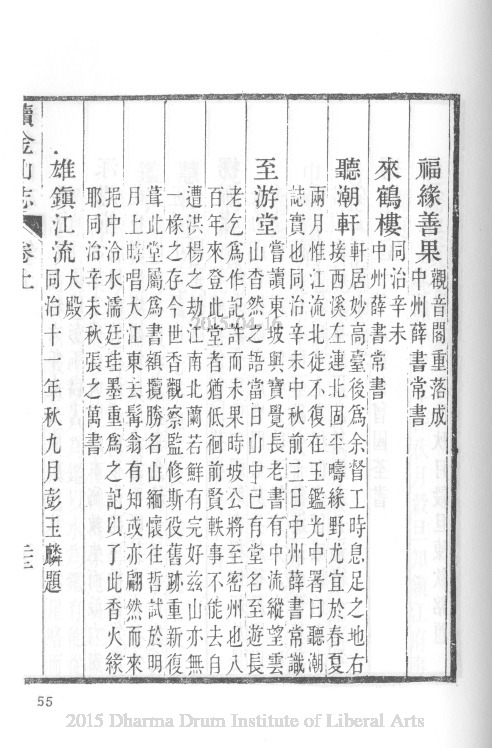 福緣善果
觀音閣重落成
中州薛書常書
來鶴樓
同治辛未
中州薛書常書
聽潮軒
軒居妙高臺後爲余督工時息足之地右
接西溪左連北固平疇緣野尤宜於春夏
兩月惟江流北徙不復在玉鑑光中署曰聽潮
誌實也同治辛未中秋前三日中州薛書常識
至游堂
嘗讀東坡與寶覺長老書有中流縱望雲
山杳然之語當日山中已有堂名至遊長
老乞爲作記許而未果時坡公將至密州也八
百年來登此堂者猶低徊前賢軼事不能去自
遭洪楊之劫江南北蘭若鮮有完好兹山亦無
一椽之存今世香觀察監修斯役舊跡重新復
葺此堂屬爲書額攬勝名山緬懷往哲試於明
月上時唱大江東去髯翁有知或亦翩然而來
挹中泠水濡廷珪墨重爲之記以了此香火緣
耶同治辛未秋張之萬書
雄鎮江流
大殿
同治十一年秋九月彭玉麟題
續金山志 卷上
二十二
55
2015 Dharma Drum Institute of Liberal Arts